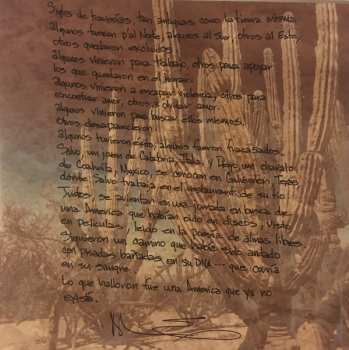 Siglos de travesías, tan antiguas como la tierra misma,
algunos fueron p'al Norte, algunos al Sur, otros al Este,
otros quedaron excluidos.
algunos vinieron para trabajo, otros para apoyar
los que quedaron en el hogar.
algunos vinieron a escapar violencia, otros para
encontrar amor, otros a olvidar amor.
algunos vinieron para buscar ellos mismos.
Otros desaparecieron.
algunos tuvieron éxito, algunos fueron fracasados.
Salvo, un joven de Calabria, Italia y Diego, un chavalo
de Coahuila, México, se conocen en Galveston, Texas
donde Salvo trabaja en el
Juntos, se avientan en una jornada en busca de
una America que habían oído en discos, visto
en películas, leído en la poesía de almas libres.
Siguieron un camino que había sido antado
con pisadas bañadas en su DNA --- que corría
en su sangre.
Lo que hallaron fue una America que ya no
existe.